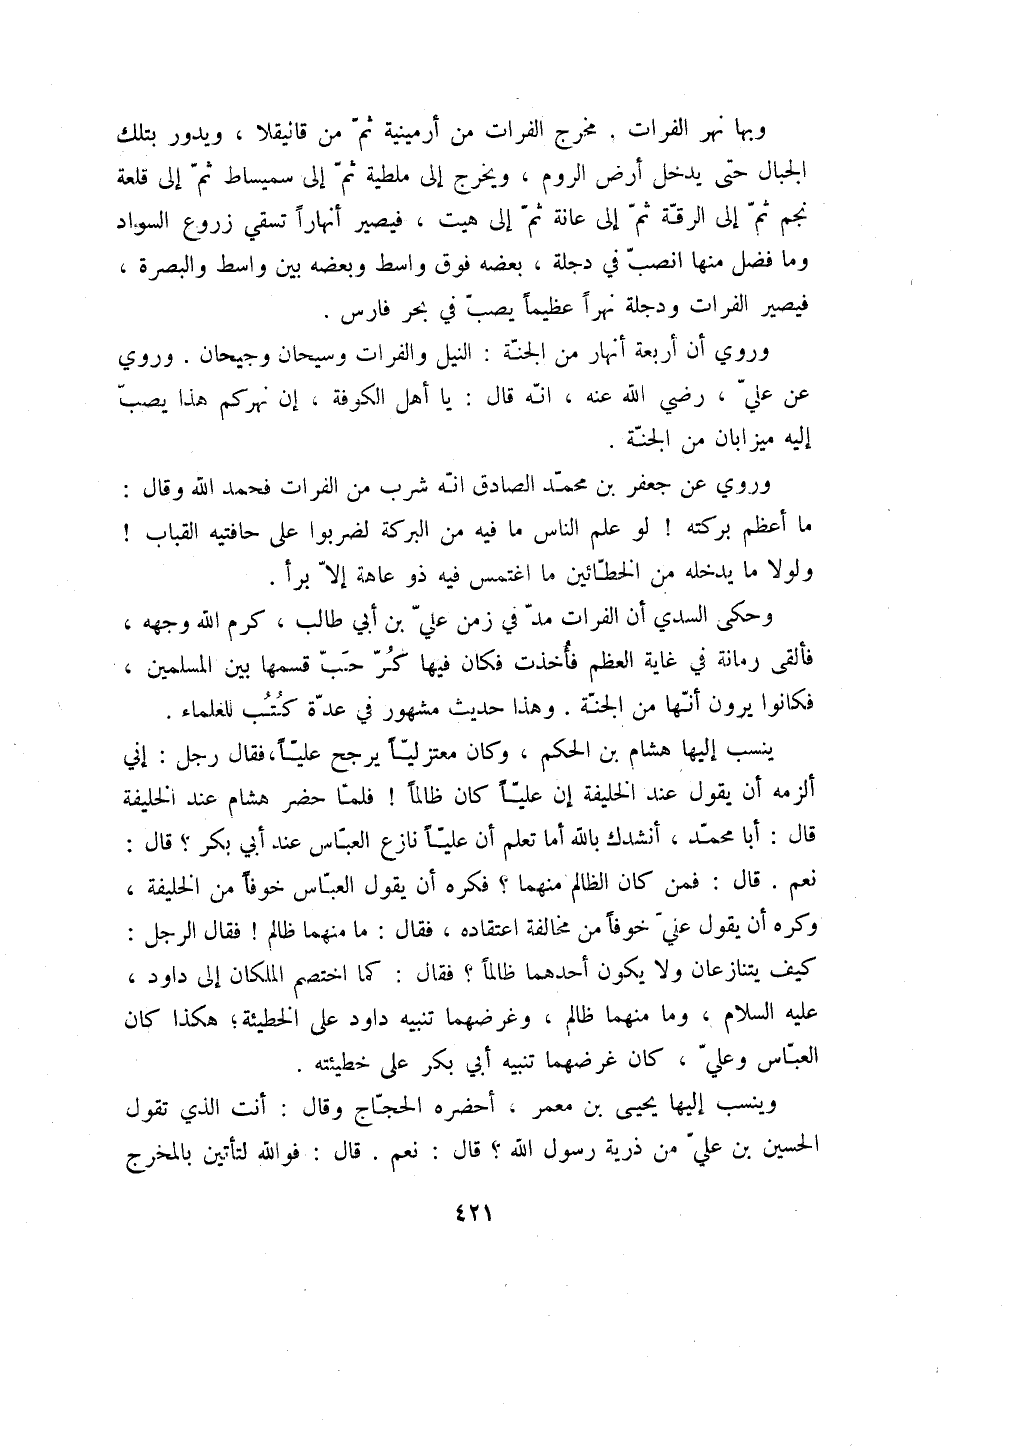 وبها نهر الفرات . مخرج الفرات من أرمينية ثمّ من قاليقلا ، ويدور بتلك
الجبال حتى يدخل أرض الروم ، ويخرج إلى ملطية ثمّ إلى سميساط ثمّ إلى قلعة
نجم ثمّ إلى الرقّة ثمّ إلى عانة ثمّ إلى هيت ، فيصير أنهاراً تسقي زروع السواد
وما فضل منها انصبّ في دجلة ، بعضه فوق واسط وبعضه بين واسط والبصرة ،
فيصير الفرات ودجلة نهراً عظيماً يصبّ في بحر فارس .
وروي أن أربعة أنهار من الجنّة : النيل والفرات وسيحان وجيحان . وروي
عن عليّ ، رضي الله عنه ، انّه قال : يا أهل الكوفة ، إن نهركم هذا يصبّ
إليه ميزابان من الجنّة .
وروي عن جعفر بن محمّد الصادق انّه شرب من الفرات فحمد الله وقال :
ما أعظم بركته ! لو علم الناس ما فيه من البركة لضربوا على حافتيه القباب !
ولولا ما يدخله من الخطّائين ما اغتمس فيه ذو عاهة إلاّ برأ .
وحكى السدي أن الفرات مدّ في زمن عليّ بن أبي طالب ، كرم الله وجهه ،
فألقى رمانة في غاية العظم فأُخذت فكان فيها كُرّ حَبّ قسمها بين المسلمين ،
فكانوا يرون أنّها من الجنّة . وهذا حديث مشهور في عدّة كُتُب للعلماء .
ينسب إليها هشام بن الحكم ، وكان معتزليّاً يرجح عليّاً، فقال رجل : إني
ألزمه أن يقول عند الخليفة إن عليّاً كان ظالماً ! فلمّا حضر هشام عند الخليفة
قال : أبا محمّد ، أنشدك بالله أما تعلم أن عليّاً نازع العبّاس عند أبي بكر ؟ قال :
نعم . قال : فمن كان الظالم منهما ؟ فكره أن يقول العبّاس خوفاً من الخليفة ،
وكره أن يقول عليّ خوفاً من مخالفة اعتقاده ، فقال : ما منهما ظالم ! فقال الرجل :
كيف يتنازعان ولا يكون أحدهما ظالماً ؟ فقال : كما اختصم الملكان إلى داود ،
عليه السلام ، وما منهما ظالم ، وغرضهما تنبيه داود على الخطيئة؛ هكذا كان
العبّاس وعليّ ، كان غرضهما تنبيه أبي بكر على خطيئته .
وينسب إليها يحيى بن معمر ، أحضره الحجّاج وقال : أنت الذي تقول
الحسين بن عليّ من ذرية رسول الله ؟ قال : نعم . قال : فوالله لتأتين بالمخرج
٤٢١